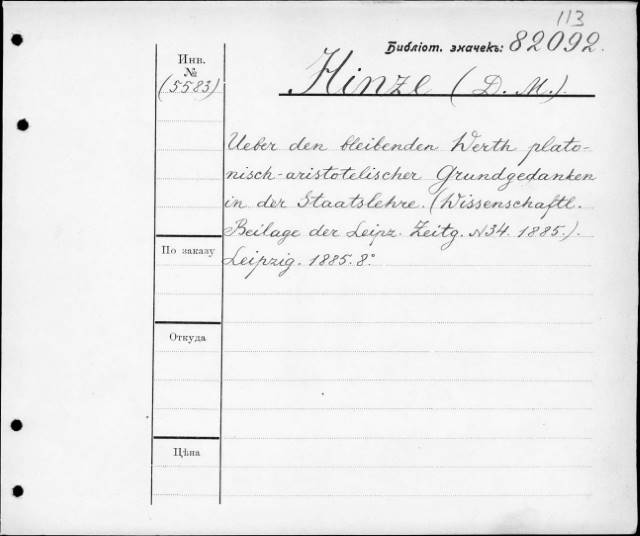 113
Библіот. значекъ: 82092.
Инв.
№
(5583)
Hinze (D. M.).
Ueber den bleibenden Werth plato-
nisch-aristotelischer Grundgedanken
in der Staatslehre. (Wissenschaftl.
Beilage der Leipz. Zeitg. N34. 1885.).
Leipzig. 1885. 8°
По заказу
Откуда
Цѣна